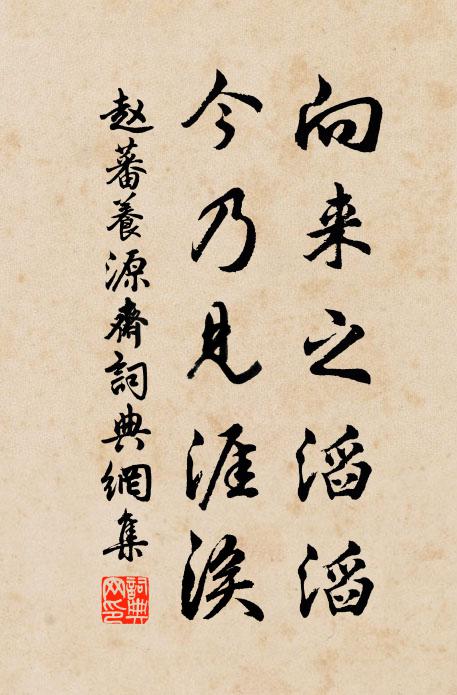 向来之滔滔
今乃见涯涘
赵蕃養源齋詞典網集
詞典網印